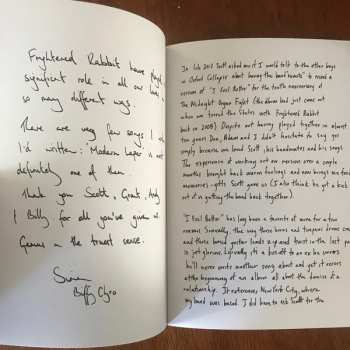 Frightened Rabbit have played
significant role in all our
so many different ways.
There are very few songs I wish
I'd written; 'Modern Leper' is
definitely one of them.
Thank you Scott, Grant, Andy
& Billy for all you've given us.
Genius in the truest sense.
Simon
Biffy Clyro
In Feb 2018 Scott asked me if I would talk to the other boys
in Oxford Collapse about having the band reunite to record a
version of "I Feel Better" for the tenth anniversary of
The Midnight Organ Fight (the album had just come out
when we toured the States with Frightened Rabbit
back in 2008). Despite not having played together in almost
ten years Dan, Adam and I didn't hesitate to say yes
simply because we loved Scott, his bandmates and his songs.
The experience of working out our version over a couple
months brought back warm feelings and new songs
memories - gifts Scott gave us (I also think he got a kick
out of us getting the band back together).
"I Feel Better" has long been a favorite of mine for a few
reasons. Sonically, the way those horns and tympani drums
and those buried guitar leads zip and twist in the last
so just glorious. Lyrically, it's a farewell to an ex he swears
he'll never write another song about and yet it occurs
at the beginning of an album all about the demise of a
relationship. It references New York City, where
my band was based. I did learn to ask Scott for the